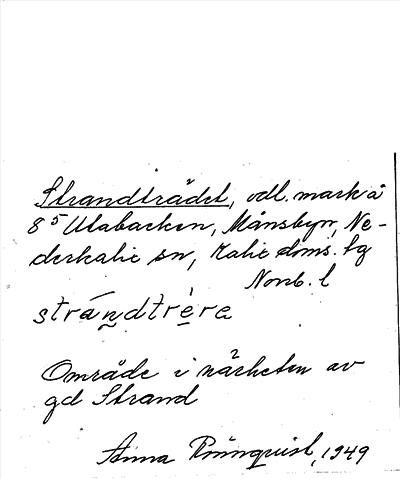 Strandträdet, odl. mark å
8⁵ Utabacken, Månsbyn, Ne-
derkalix sn, Kalix doms. tg
Norrb. l
strándtrère
Område i närheten av
gd Strand
Anna Rönnquist, 1949